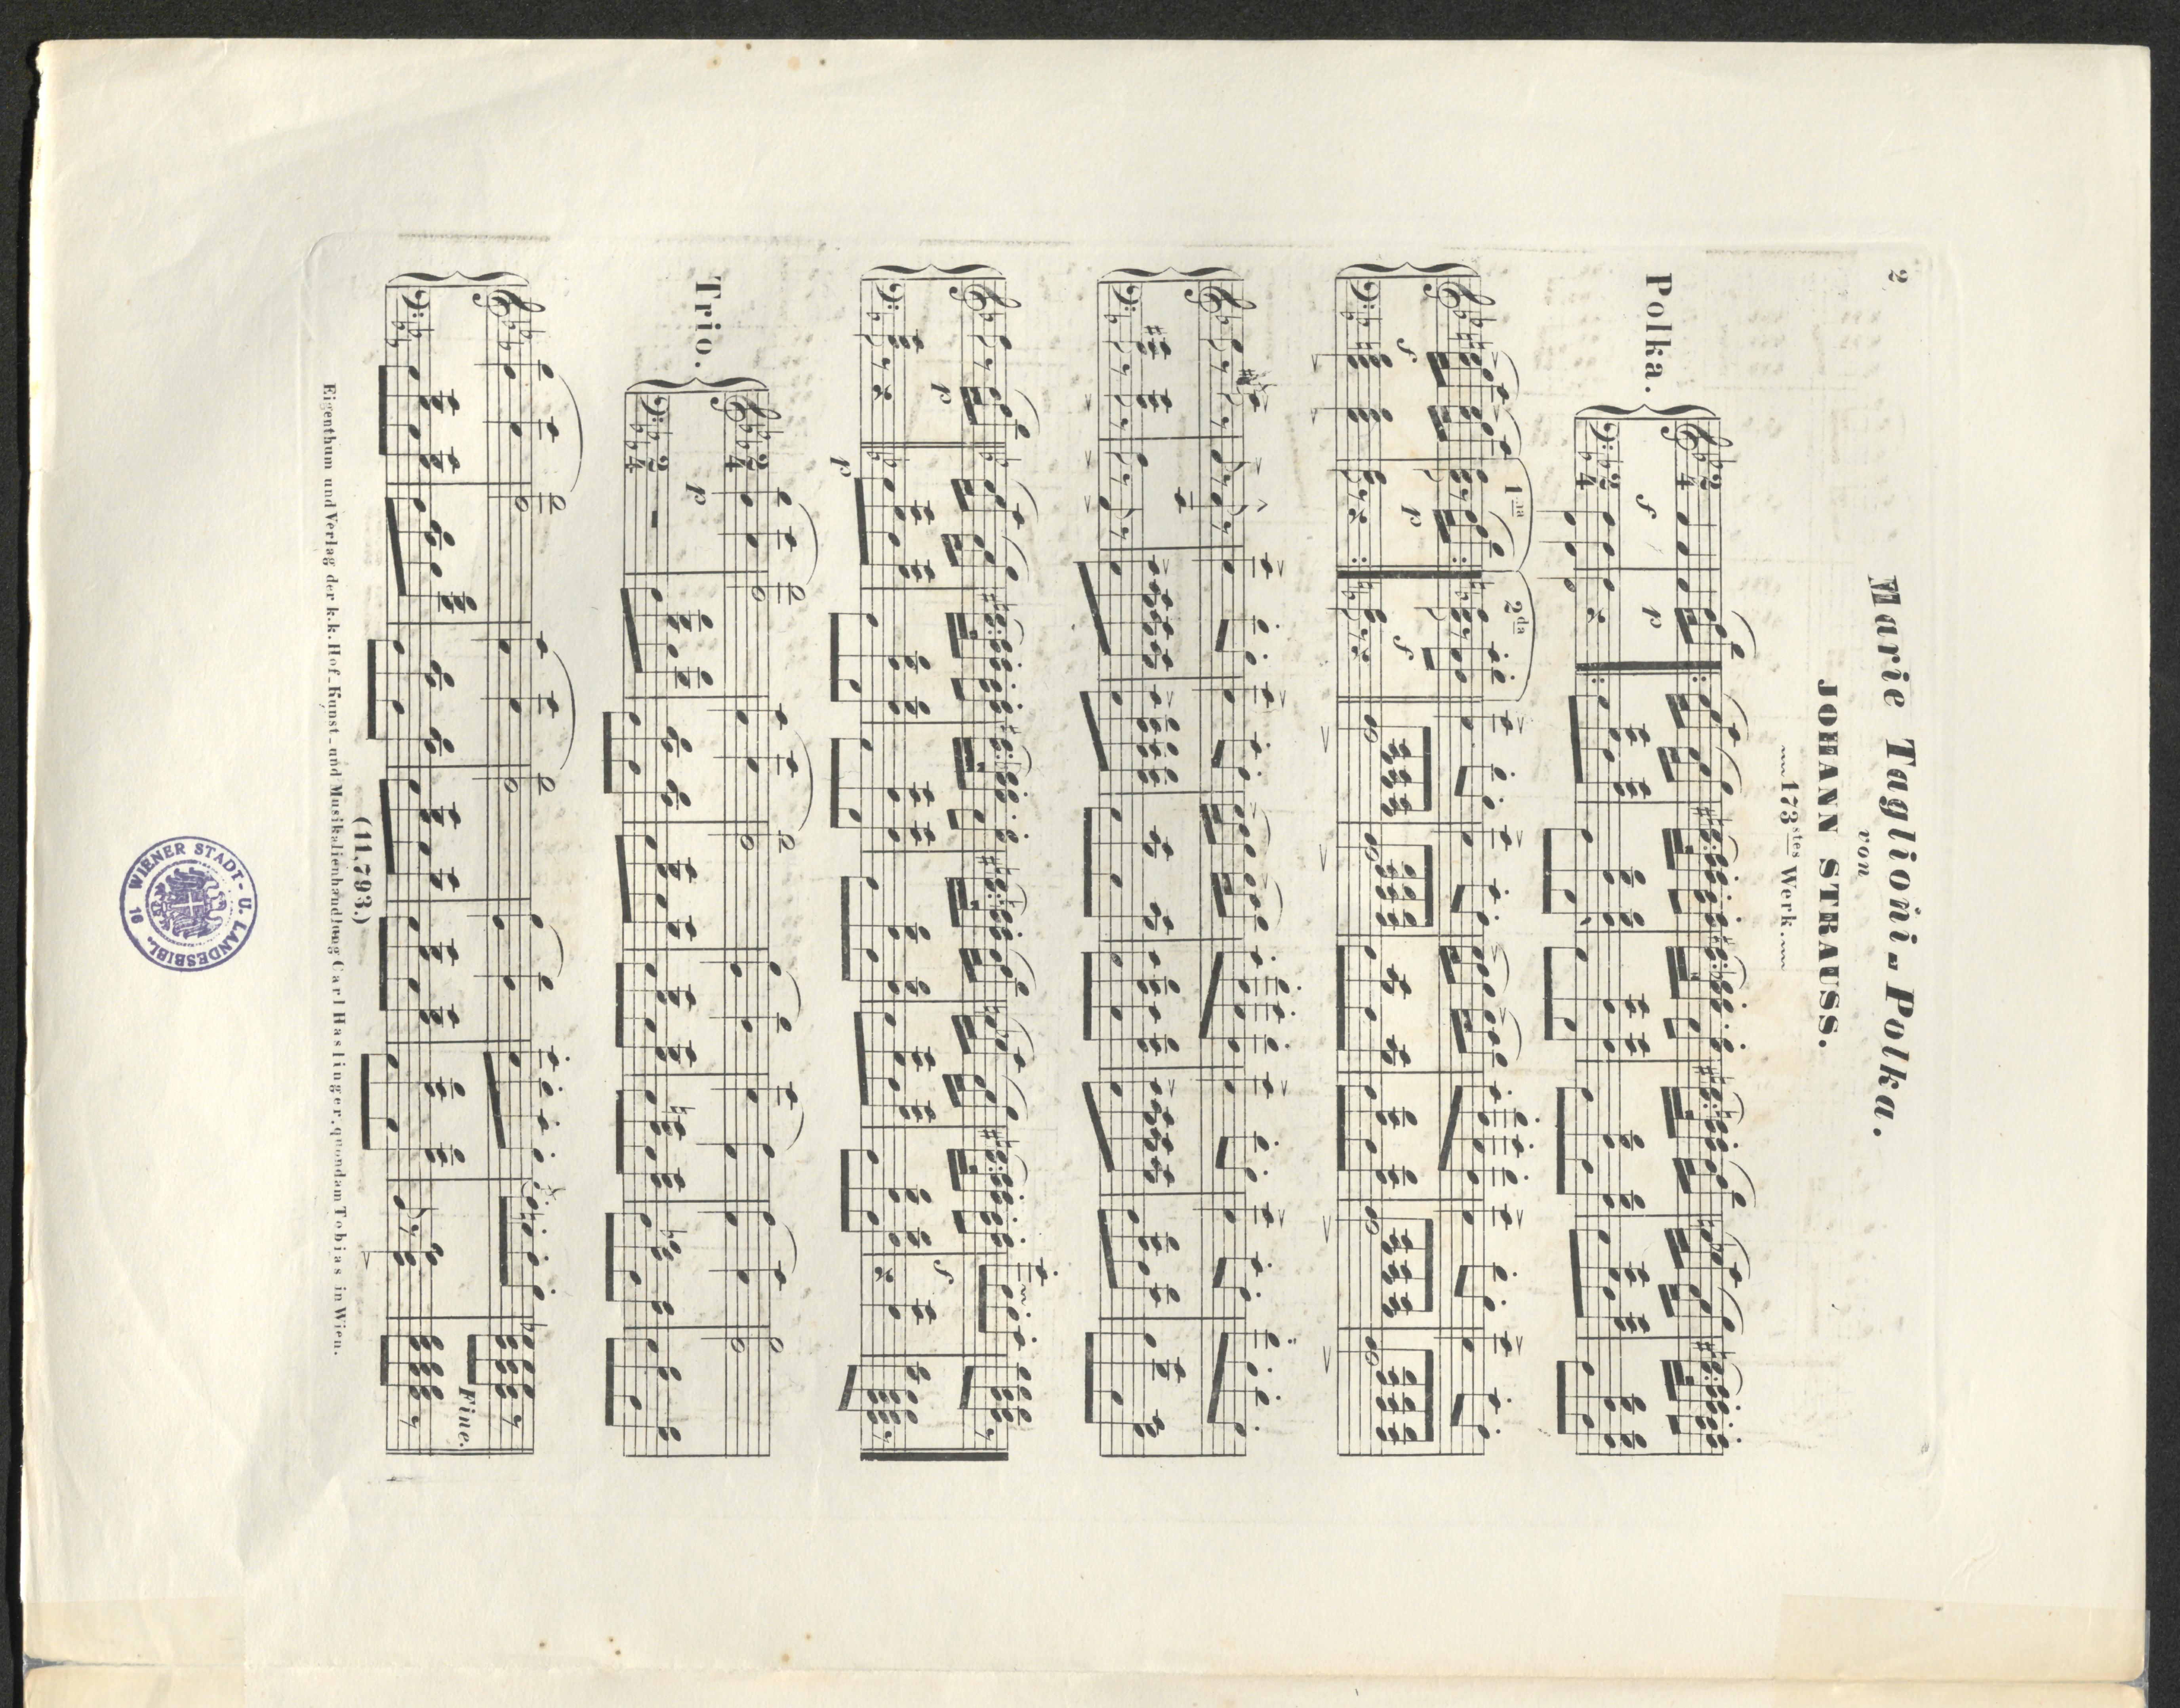 2
Marie Taglioni-Polka.
von
JOHANN STRAUSS.
173stes Werk.
Polka.
f
p
1ma
2da
f
p
f
p
p
f
Trio.
p
Fine.
(11,793.)
Eigenthum und Verlag der k.k. Hof-Kunst-und Musikalienhandlung Carl Haslinger, quondam Tobias in Wien.
WIENER STADT- U. LANDESBIBL. 16